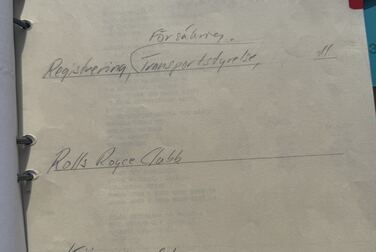 Försäkring.
Registrering, Transportstyrelse, 11
Rolls Royce Clubb